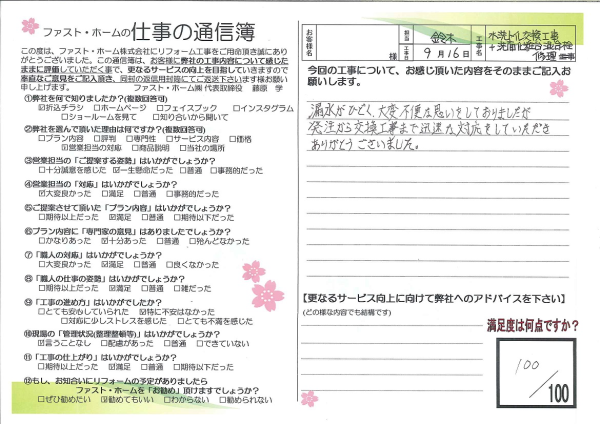 ファスト・ホームの仕事の通信簿
この度は、ファスト・ホーム株式会社にリフォーム工事をご用命頂き誠にあり
がとうございました。この通信簿は、お客様に弊社の工事内容について感じた
ままに評価していただく事で、更なるサービスの向上を目指していきますので
率直なご意見をご記入頂き、同封の返信用封筒にてご返送下さいます様お願い
申し上げます。 ファスト・ホーム㈱ 代表取締役 藤原 学
①弊社を何で知りましたか?(複数回答可)
☑折込チラシ □ホームページ □フェイスブック □インスタグラム
□ショールームを見て □知り合いから聞いて
②弊社を選んで頂いた理由は何ですか?(複数回答可)
□プラン内容 □評判 □専門性 □サービス内容 □価格
☑営業担当の対応 □商品説明 □当社の場所
③営業担当の「ご提案する姿勢」はいかがでしょうか?
□十分誠意を感じた ☑一生懸命だった □普通 □事務的だった
④営業担当の「対応」はいかがでしょうか?
☑大変良かった □満足 □普通 □事務的だった
⑤ご提案させて頂いた「プラン内容」はいかがでしょうか?
□期待以上だった ☑満足 □普通 □期待以下だった
⑥プラン内容に「専門家の意見」はありましたでしょうか?
□かなりあった ☑十分あった □普通 □殆んどなかった
⑦「職人の対応」はいかがでしょうか?
□大変良かった ☑満足 □普通 □良くなかった
⑧「職人の仕事の姿勢」はいかがでしょうか?
□期待以上だった ☑満足 □普通 □雑だった
⑨「工事の進め方」はいかがでしたか?
□とても安心していられた ☑特に不安はなかった
□対応に少しストレスを感じた □とても不満を感じた
⑩現場の「管理状況(整理整頓等)」はいかがでしたか?
☑言うことなし □配慮があった □普通 □できていない
⑪「工事の仕上がり」はいかがでしょうか?
□期待以上だった ☑満足 □普通 □期待以下だった
⑫もし、お知合いにリフォームの予定がありましたら
ファスト・ホームを「お勧め」頂けますでしょうか?
□ぜひ勧めたい ☑勧めてもいい □わからない □勧められない
お客様名 様
担当 鈴木
工事日 9月16日
工事名 水洗トイレ交換工事
+洗面化粧台混合栓
修理工事
今回の工事について、お感じ頂いた内容をそのままご記入お
願いします。
漏水がひどく、大変不便な思いをしておりましたが
発注から交換工事まで迅速な対応をしていただき
ありがとうございました。
【更なるサービス向上に向けて弊社へのアドバイスを下さい】
(どの様な内容でも結構です)
満足度は何点ですか?
100
/100